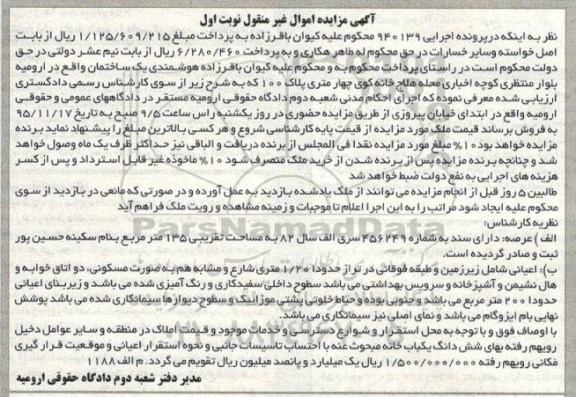 آگهی مزایده اموال غیر منقول نوبت اول
نظر به اینکه در پرونده اجرایی ۹۴۰۱۳۹ محکوم علیه کیوان باقرزاده به پرداخت مبلغ ۱/۱۲۵/۶۰۹/۲۱۵ ریال از بابت
اصل خواسته وسایر خسارات در حق محکوم له طاهر هکاری و به پرداخت ۶/۲۸۰/۴۶۰ ریال از بابت نیم عشر دولتی در حق
دولت محکوم است در راستای پرداخت محکوم به و محکوم علیه کیوان باقرزاده هوشمندی یک ساختمان واقع در ارومیه
بلوار منتظری کوچه اخباری محله ملاج خانه کوی چهار متری پلاک ۱۰۰ که به شرح زیر از سوی کارشناس رسمی دادگستری
ارزیابی شده معرفی نموده که اجرای احکام مدنی شعبه دوم دادگاه حقوقی ارومیه مستقر در دادگاههای عمومی و حقوقی
ارومیه واقع در ابتدای خیابان پیروزی از طریق مزایده حضوری در روز یکشنبه راس ساعت ۹/۵ صبح به تاریخ ۹۵/۱۱/۱۷
به فروش برساند قیمت ملک مورد مزایده از قیمت پایه کارشناسی شروع و هر کسی بالاترین مبلغ را پیشنهاد نماید برنده
مزایده خواهد بود ۱۰% مبلغ مورد مزایده نقدا فی المجلس از برنده دریافت و الباقی نیز حداکثر ظرف یک ماه وصول خواهد
شد و چنانچه برنده مزایده پس از برنده شدن از خرید ملک منصرف شود ۱۰% ماخوذه غیر قابل استرداد و پس از کسر
هزینه های اجرایی به نفع دولت ضبط خواهد شد
طالبین ۵ روز قبل از انجام مزایده می توانند از ملک یادشده بازدید به عمل آورده و در صورتی که مانعی در بازدید از سوی
محکوم علیه ایجاد شود مراتب را به این اجرا اعلام تا موجبات و زمینه مشاهده و رویت ملک فراهم آید
نظریه کارشناس:
الف) عرصه: دارای سند به شماره ۴۵۶۲۴۹ سری الف سال ۸۲ به مساحت تقریبی ۱۳۵ متر مربع بنام سکینه حسین پور
ثبت و صادر گردیده است.
ب): اعیانی شامل زیرزمین و طبقه فوقانی در تراز حدودا ۱/۲۰ متری شارع و مشابه هم به صورت مسکونی، دو اتاق خوابه و
هال نشیمن و آشپزخانه و سرویس بهداشتی می باشد سطوح داخلی سفیدکاری و رنگ آمیزی شده می باشد و زیربنای اعیانی
حدودا ۲۰۰ متر مربع می باشد و جنوبی بوده و حیاط خلوتی پشتی موزاییک و سطوح دیوارها سیمانکاری شده می باشد پوشش
نهایی بام ایزوگام می باشد و نمای اصلی نیز سیمانکاری می باشد.
با اوصاف فوق و با توجه به محل استقرار و شوارع دسترسی و خدمات موجود و قیمت املاک در منطقه و سایر عوامل دخیل
رویهم رفته بهای شش دانگ یکباب خانه مبحوث عنه با احتساب تاسیسات جانبی و نحوه استقرار اعیانی و موقعیت قرار گیری
مکانی رویهم رفته ۱/۵۰۰/۰۰۰/۰۰۰ ریال یک میلیارد و پانصد میلیون ریال تقویم می گردد. م الف ۱۱۸۸
مدیر دفتر شعبه دوم دادگاه حقوقی ارومیه
ParsNamadData